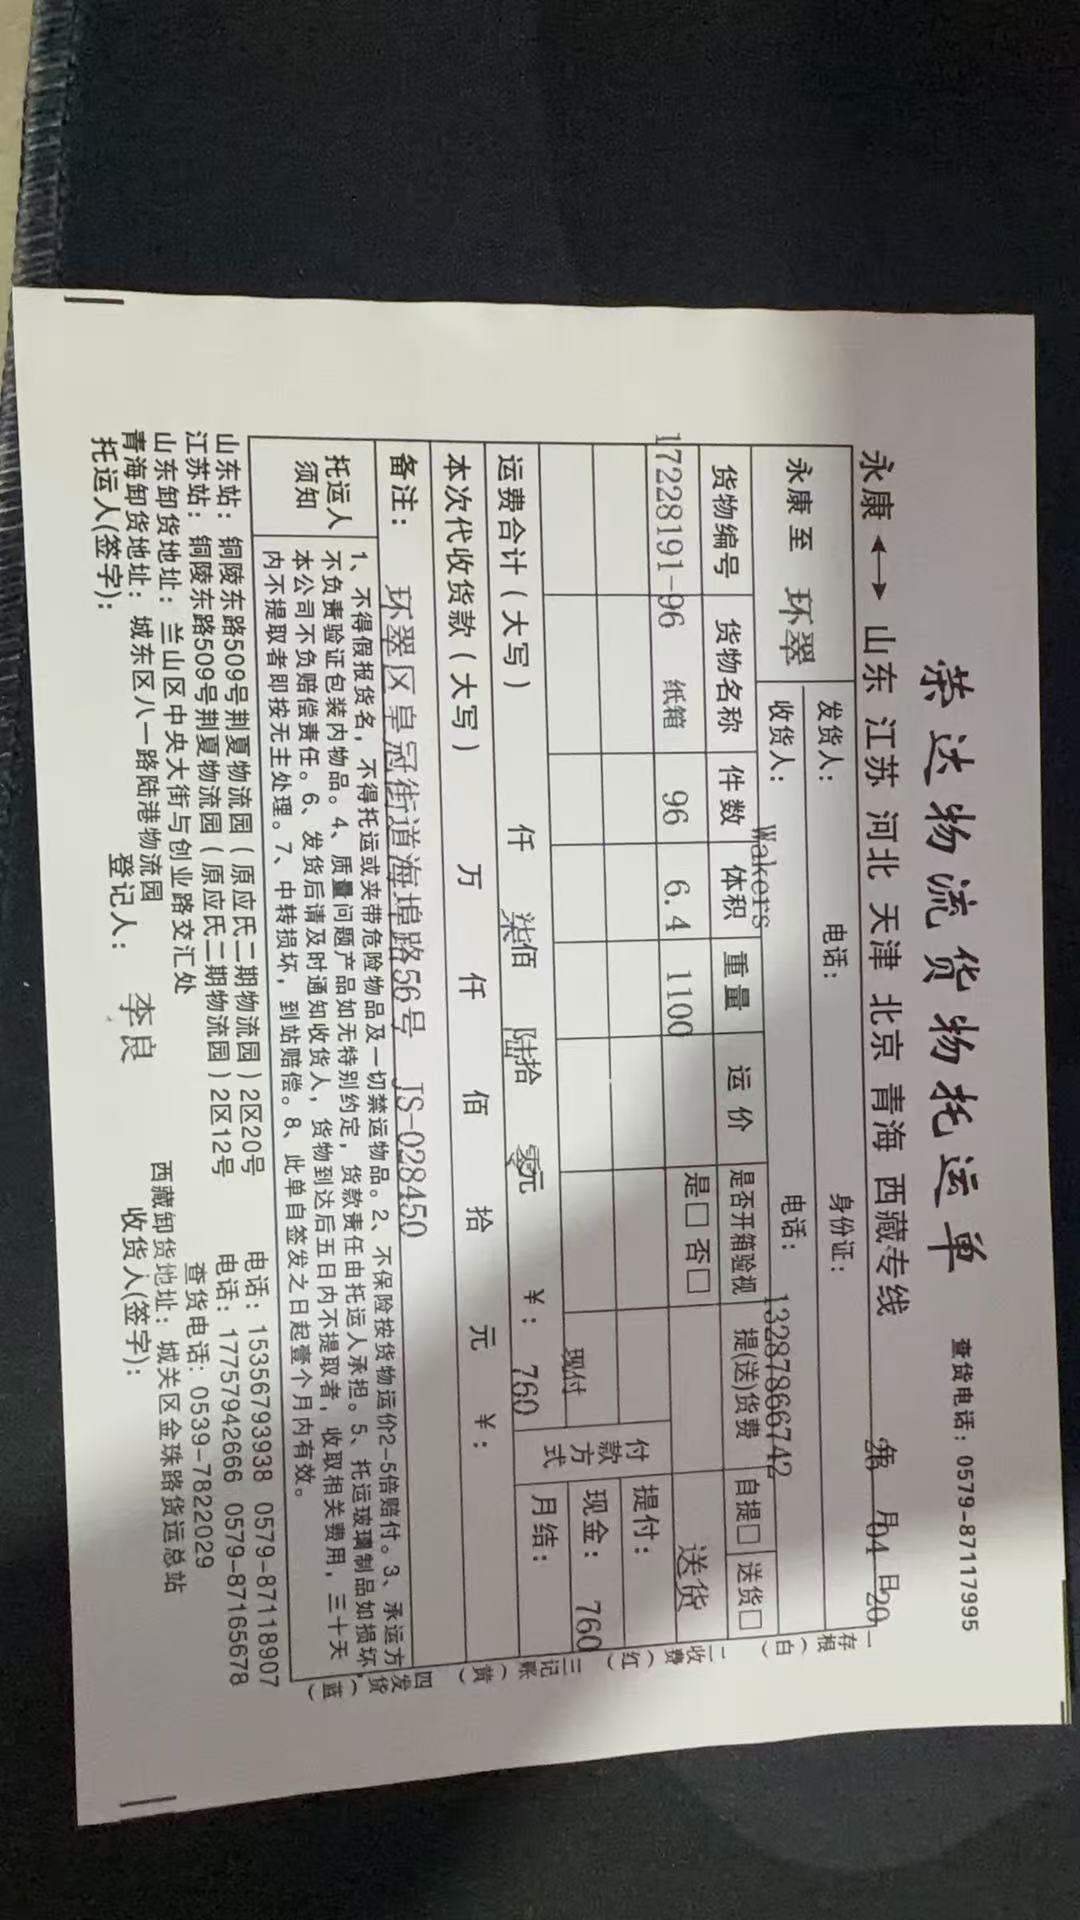 荣达物流货物托运单
查货电话：0579-87117995
永康 ←→ 山东 江苏 河北 天津 北京 青海 西藏专线
年 月04 日20
永康 至 环翠
发货人： 电话： 身份证：
收货人： Wakers 电话： 13287866742
货物编号 货物名称 件数 体积 重量 运 价 是否开箱验视 提(送)货费 自提□ 送货□
17228191-96 纸箱 96 6.4 1100 是□ 否□ 送货
付款方式
提付：
现付
现金： 760
月结：
运费合计（大写） 仟 柒佰 陆拾 零元 ￥： 760
本次代收货款（大写） 万 仟 佰 拾 元 ￥：
备注： 环翠区皇冠街道海埠路56号 JS-028450
托运人须知
1、不得假报货名，不得托运或夹带危险物品及一切禁运物品。2、不保险按货物运价2-5倍赔付。3、承运方
不负责验证包装内物品。4、质量问题产品如无特别约定，货款责任由托运人承担。5、托运玻璃制品如损坏，
本公司不负赔偿责任。6、发货后请及时通知收货人，货物到达后五日内不提取者，收取相关费用，三十天
内不提取者即按无主处理。7、中转损坏，到站赔偿。8、此单自签发之日起壹个月内有效。
一存根（白）
二收费（红）
三记账（黄）
四发货（蓝）
山东站：铜陵东路509号荆夏物流园（原应氏二期物流园）2区20号 电话：15356793938 0579-87118907
江苏站：铜陵东路509号荆夏物流园（原应氏二期物流园）2区12号 电话：17757942666 0579-87165678
山东卸货地址：兰山区中央大街与创业路交汇处 查货电话：0539-7822029
青海卸货地址：城东区八一路陆港物流园 西藏卸货地址：城关区金珠路货运总站
托运人(签字)： 登记人： 李良 收货人(签字)：